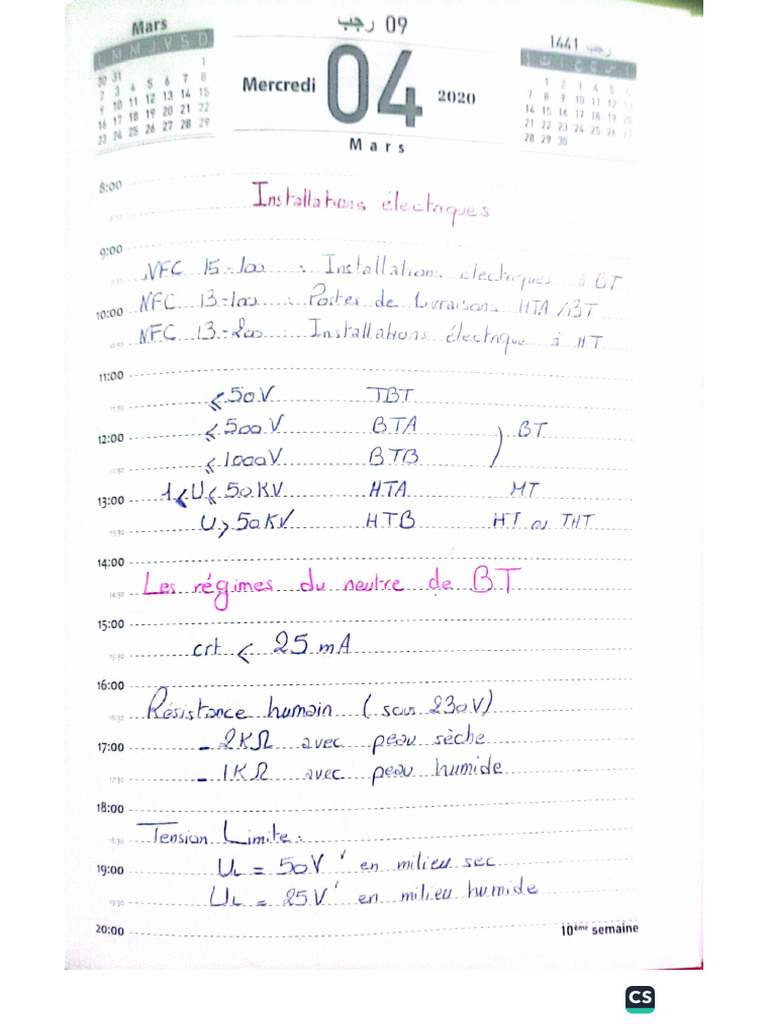 Mars
L M M J V S D
1
30 31
2 3 4 5 6 7 8
9 10 11 12 13 14 15
16 17 18 19 20 21 22
23 24 25 26 27 28 29
09 رجب
Mercredi 04 2020
Mars
رجب 1441
28 29 30
8:00
Installations électriques
9:00
NFC 15-100 : Installations électriques à BT
10:00
NFC 13-100 : Postes de Livraisons HTA/BT
NFC 13-200 : Installations électrique à HT
11:00
⩽ 50V TBT
⩽ 500V BTA
12:00
BT
⩽ 1000V BTB
13:00
1 < U ⩽ 50KV HTA MT
U > 50KV HTB HT ou THT
14:00
Les régimes du neutre de BT
15:00
crt < 25 mA
16:00
Résistance humain (sous 230V)
17:00
- 2KΩ avec peau sèche
- 1KΩ avec peau humide
18:00
Tension Limite :
19:00
UL = 50V en milieu sec
UL = 25V en milieu humide
20:00
10ème semaine
CS